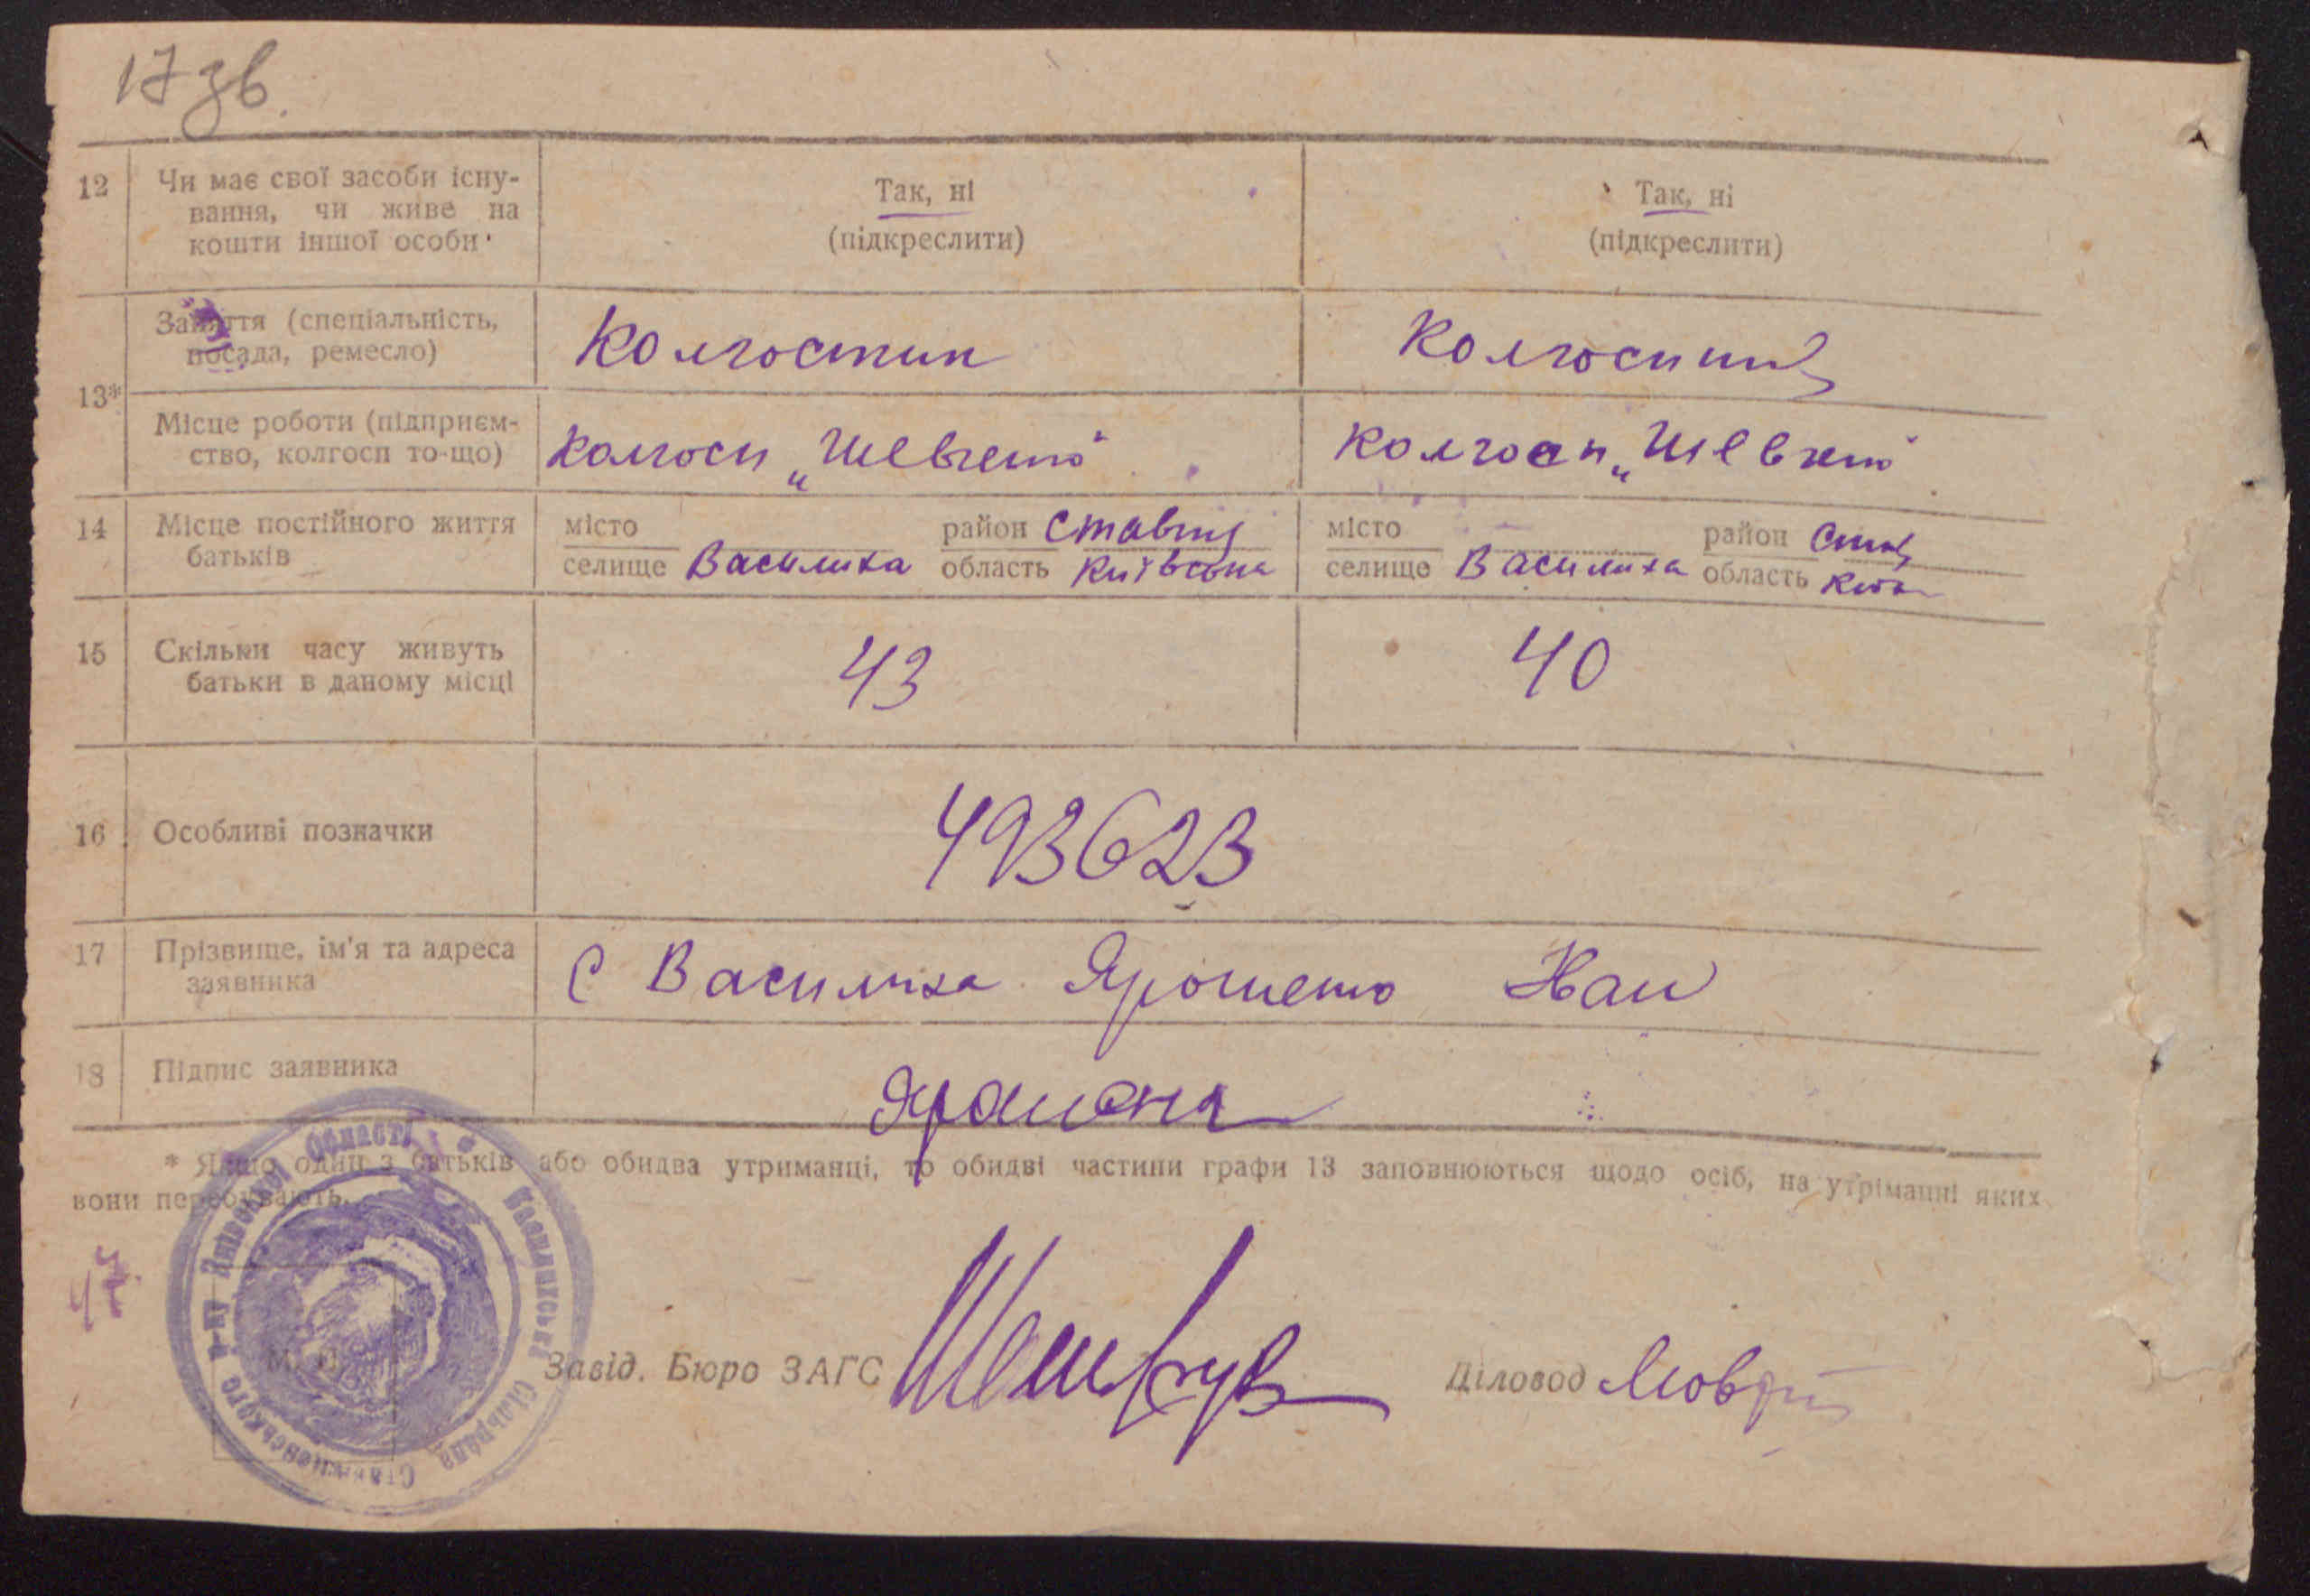 17 зв.
12 Чи має свої засоби існу-
вання, чи живе на
кошти іншої особи
Так, ні
(підкреслити)
Так, ні
(підкреслити)
13*
Заняття (спеціальність,
посада, ремесло)
Колгоспник
Колгоспниц
Місце роботи (підприєм-
ство, колгосп то-що)
Колгосп „Шевченко"
Колгосп „Шевченко"
14 Місце постійного життя
батьків
місто
селище Василиха
район Ставищ
область Київська
місто
селище Василиха
район Став
область
15 Скільки часу живуть
батьки в даному місці
43
40
16 Особливі позначки
493623
17 Прізвище, ім'я та адреса
заявника
С Василиха Ярошенко
18 Підпис заявника
* Якщо один з батьків або обидва утриманці, то обидві частини графи 13 заповнюються щодо осіб, на утріманні яких
вони перебувають.
47
Василиська Сільрада Ставищенського р-ну Київської Області
М. П.
Завід. Бюро ЗАГС
Діловод